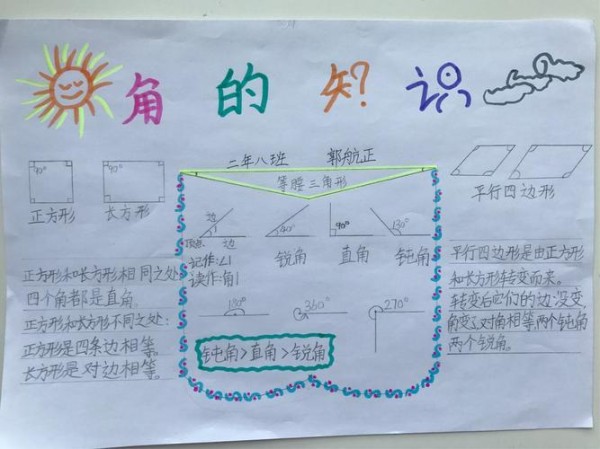 角的知识
二年八班 郭航正
等腰三角形
90°
90°
正方形 长方形
平行四边形
边
1
顶点 边
记作:∠1
读作:角1
40°
90°
130°
锐角 直角 钝角
180° 360° 270°
钝角>直角>锐角
正方形和长方形相同之处
四个角都是直角.
正方形和长方形不同之处:
正方形是四条边相等。
长方形是对边相等。
平行四边形是由正方形
和长方形转变而来。
转变后它们的边没变
角变了对角相等两个钝角
两个锐角。